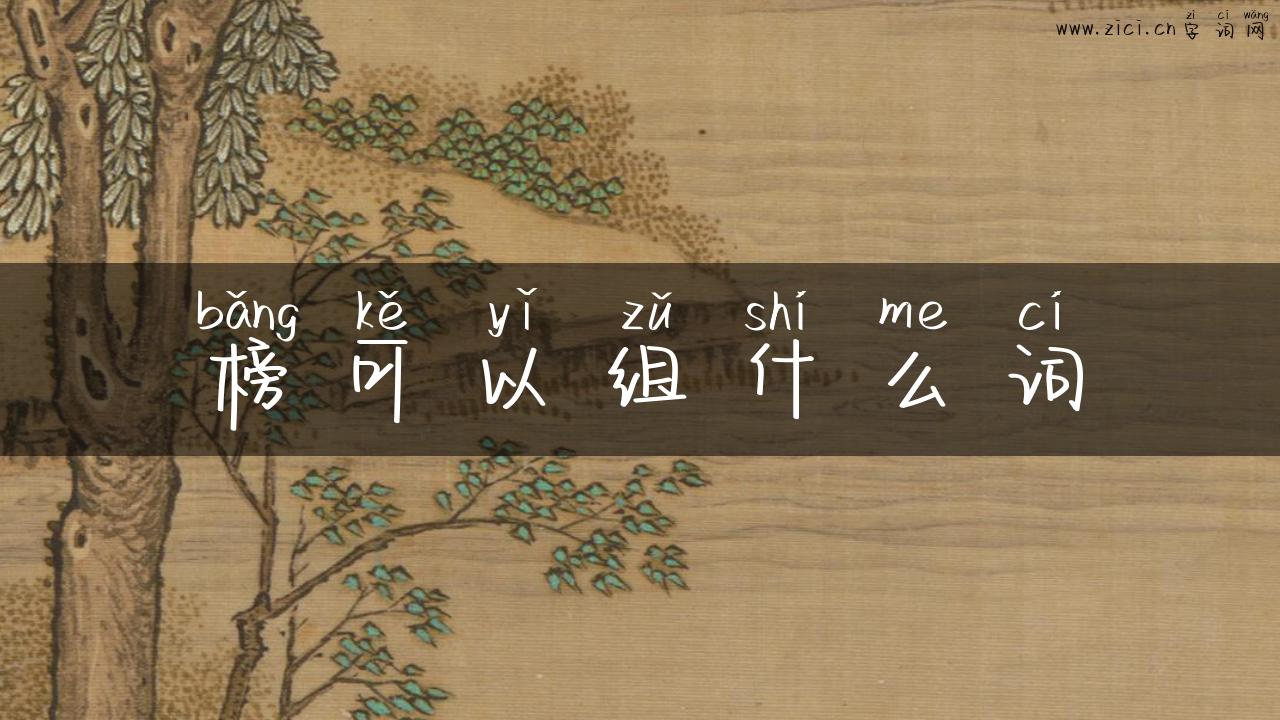 zì cí wǎng
www.zici.cn字词网
bǎng kě yǐ zǔ shí me cí
榜可以组什么词